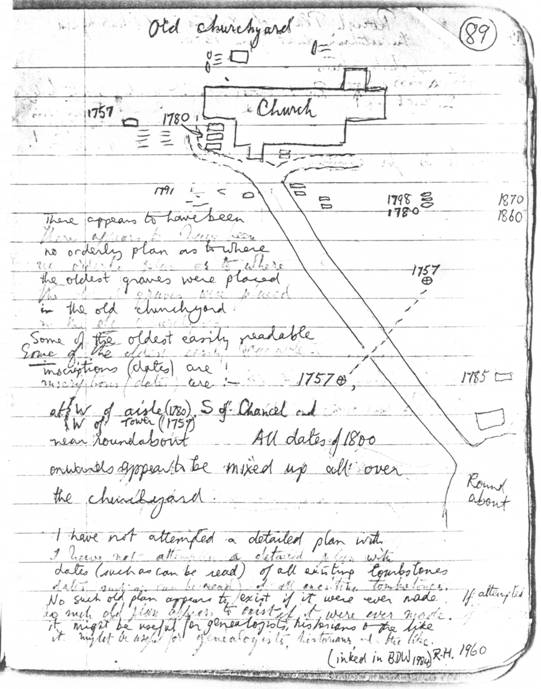 Old churchyard
89
1757
1780
Church
1791
1798
1780
1870
1860
There appears to have been
no orderly plan as to where
the oldest graves were placed
in the old churchyard.
1757
Some of the oldest easily readable
inscriptions (dates) are :-
1757
1785
at W of aisle (1780), S of Chancel and
W of Tower (1757)
near roundabout All dates of 1800
onwards appear to be mixed up all over
the churchyard.
Round
about
I have not attempted a detailed plan with
dates (such as can be read) of all existing tombstones
No such old plan appears to exist if it were ever made
If attempted
it might be useful for genealogists, historians & the like
(inked in BDW 1986) R.H. 1960